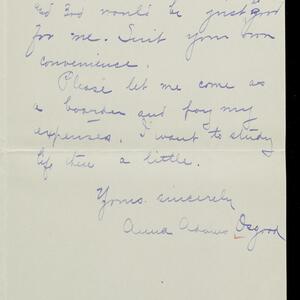 2nd 3rd would be just good
for me. Suit your own
convenience.
Please let me come as
a boarder and pay my
expenses. I want to study
life there a little.
Yours sincerely
Anna Adams Osgood